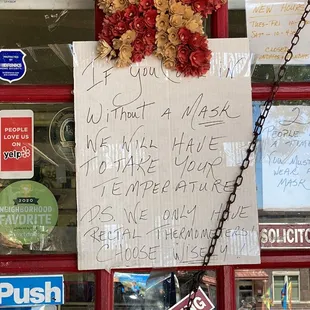 IF YOU COME IN
WITHOUT A MASK
WE WILL HAVE
TO TAKE YOUR
TEMPERATURE
P.S. WE ONLY HAVE
RECTAL THERMOMETERS
CHOOSE WISELY
PEOPLE
LOVE US
ON
yelp
2020
NEIGHBORHOOD
FAVORITE
Push
NEW HOURS
CLOSED
2
PEOPLE
MUST
WEAR
MASK
SOLICITO